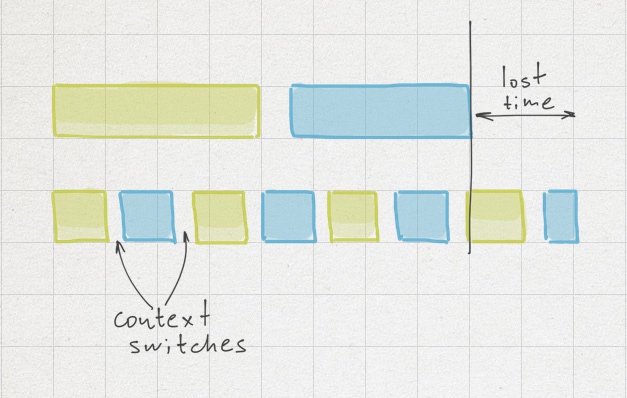 lost
time
context
switches